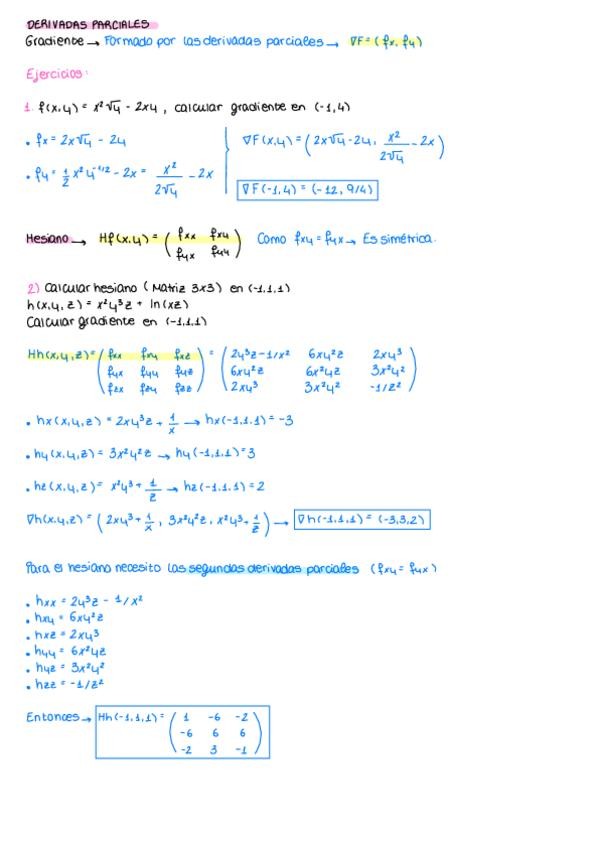 DERIVADAS PARCIALES
Gradiente → Formado por las derivadas parciales → ∇F = (fx, fy)
Ejercicios:
1. f(x,y) = x²√y - 2xy, calcular gradiente en (-1,4)
• fx = 2x√y - 2y
• fy = 1/2 x² y^-1/2 - 2x = x²/2√y - 2x
∇F(x,y) = (2x√y - 2y, x²/2√y - 2x)
∇F(-1,4) = (-12, 9/4)
Hesiano → Hf(x,y) = ( fxx fxy
fyx fyy ) Como fxy = fyx → Es simétrica.
2) Calcular hesiano (Matriz 3x3) en (-1,1,1)
h(x,y,z) = x²y³z + ln(xz)
Calcular gradiente en (-1,1,1)
Hh(x,y,z) = ( fxx fxy fxz ) = ( 2y³z - 1/x² 6xy²z 2xy³
fyx fyy fyz 6xy²z 6x²yz 3x²y²
fzx fzy fzz 2xy³ 3x²y² -1/z² )
• hx(x,y,z) = 2xy³z + 1/x → hx(-1,1,1) = -3
• hy(x,y,z) = 3x²y²z → hy(-1,1,1) = 3
• hz(x,y,z) = x²y³ + 1/z → hz(-1,1,1) = 2
∇h(x,y,z) = (2xy³ + 1/x, 3x²y²z, x²y³ + 1/z) → ∇h(-1,1,1) = (-3,3,2)
Para el hesiano necesito las segundas derivadas parciales (fxy = fyx)
• hxx = 2y³z - 1/x²
• hxy = 6xy²z
• hxz = 2xy³
• hyy = 6x²yz
• hyz = 3x²y²
• hzz = -1/z²
Entonces → Hh(-1,1,1) = ( 1 -6 -2
-6 6 6
-2 3 -1 )